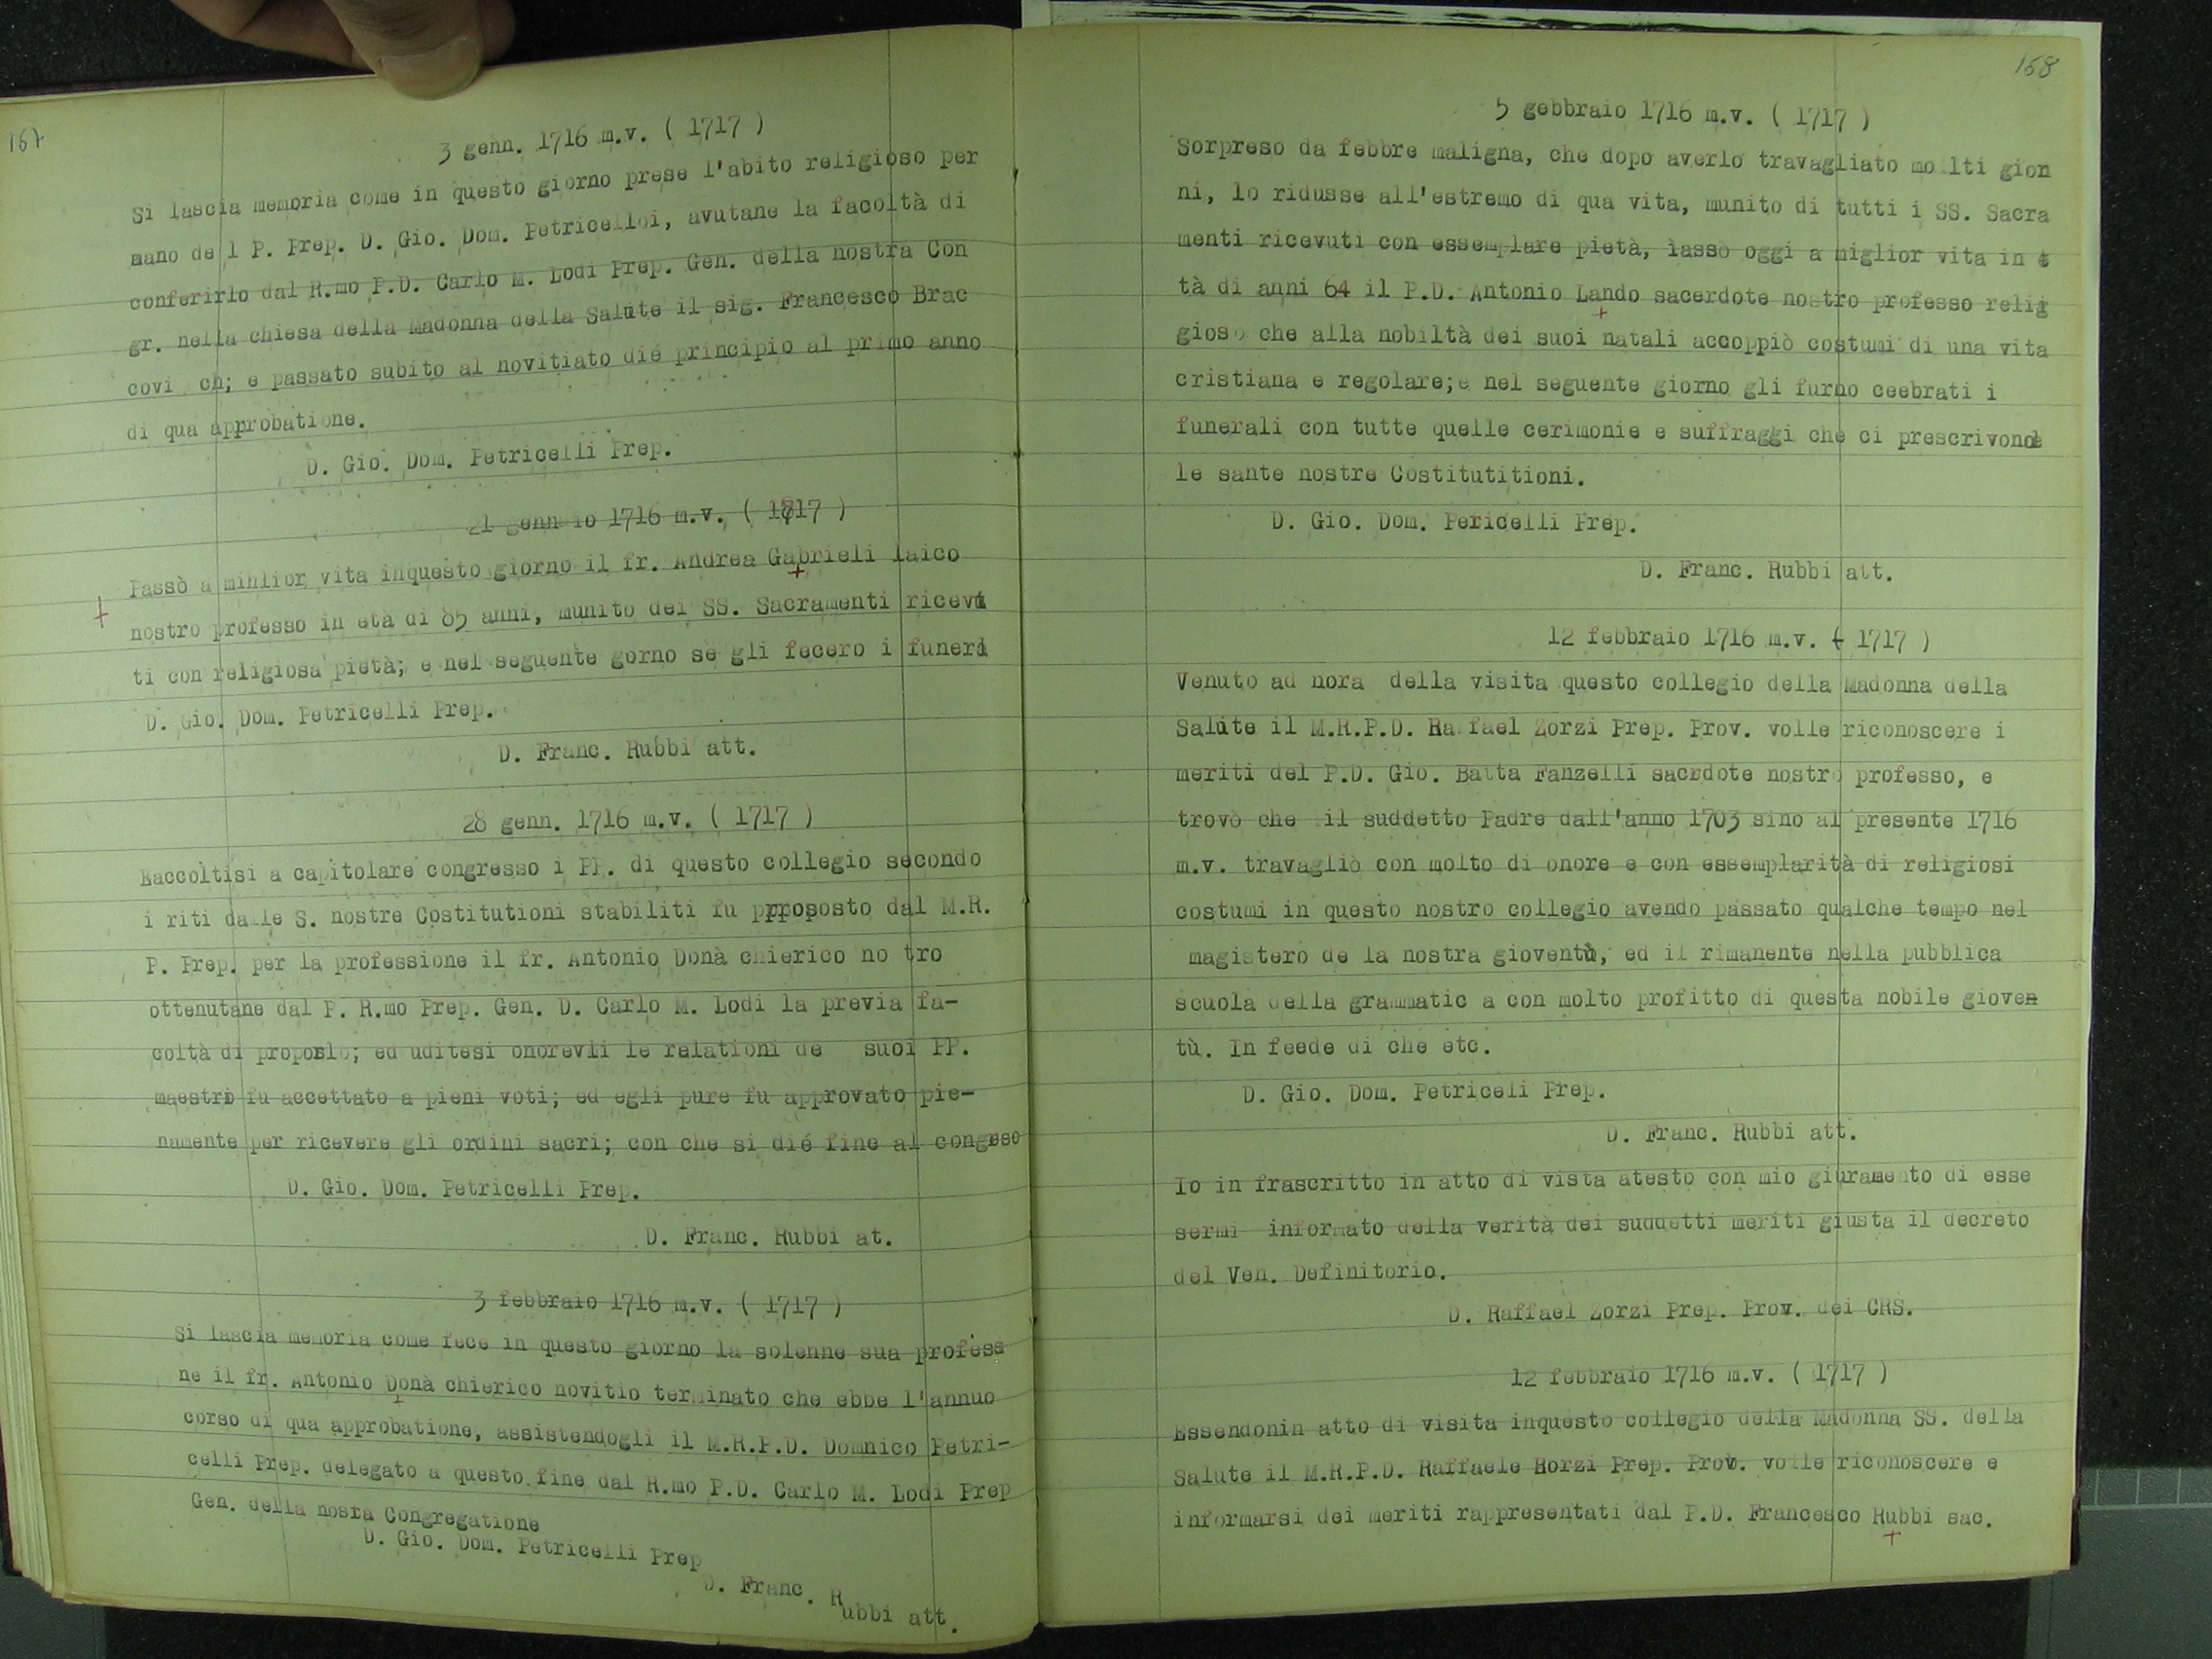 167
3 genn. 1716 m.v. ( 1717 )
Si lascia memoria come in questo giorno prese l'abito religioso per
mano de l P. Prep. D. Gio. Dom. Petricelloi, avutane la facoltà di
conferirlo dal R.mo P.D. Carlo M. Lodi Prep. Gen. della nostra Con
gr. nella chiesa della Madonna della Salute il sig. Francesco Brac
covi ch; e passato subito al novitiato dié principio al primo anno
di qua approbatione.
D. Gio. Dom. Petricelli Prep.
21 gennaio 1716 m.v. ( 1717 )
Passò a minlior vita inquesto giorno il fr. Andrea Gabrieli laico
nostro professo in età di 85 anni, munito dei SS. Sacramenti ricevu
ti con religiosa pietà; e nel seguente gorno se gli fecero i funeri
D. Gio. Dom. Petricelli Prep.
D. Franc. Rubbi att.
28 genn. 1716 m.v. ( 1717 )
Raccoltisi a capitolare congresso i PP. di questo collegio secondo
i riti dalle S. nostre Costitutioni stabiliti fu prroposto dal M.R.
P. Prep. per la professione il fr. Antonio Donà chierico no tro
ottenutane dal P. R.mo Prep. Gen. D. Carlo M. Lodi la previa fa-
coltà di proporlo; ed uditesi onorevli le relationi de suoi PP.
maestri fu accettato a pieni voti; ed egli pure fu approvato pie-
namente per ricevere gli ordini sacri; con che si dié fine al congreso
D. Gio. Dom. Petricelli Prep.
D. Franc. Rubbi at.
3 febbraio 1716 m.v. ( 1717 )
Si lascia memoria come fece in questo giorno la solenne sua profess
ne il fr. Antonio Donà chierico novitio terminato che ebbe l'annuo
corso di qua approbatione, assistendogli il M.R.P.D. Domnico Petri-
celli Prep. delegato a questo fine dal R.mo P.D. Carlo M. Lodi Prep
Gen. della nosra Congregatione
D. Gio. Dom. Petricelli Prep
D. Franc. Rubbi att.
168
5 gebbraio 1716 m.v. ( 1717 )
Sorpreso da febbre maligna, che dopo averlo travagliato mollti gion
ni, lo ridusse all'estremo di qua vita, munito di tutti i SS. Sacra
menti ricevuti con essemplare pietà, lassò oggi a miglior vita in e
tà di anni 64 il P.D. Antonio Lando sacerdote nostro professo relig
gioso che alla nobiltà dei suoi natali accoppiò costumi di una vita
cristiana e regolare;e nel seguente giorno gli furno ceebrati i
funerali con tutte quelle cerimonie e suffraggi che ci prescrivono
le sante nostre Costitutitioni.
D. Gio. Dom. Pericelli Prep.
D. Franc. Rubbi att.
12 febbraio 1716 m.v. ( 1717 )
Venuto ad nora della visita questo collegio della Madonna della
Salute il M.R.P.D. Raffael Zorzi Prep. Prov. volle riconoscere i
meriti del P.D. Gio. Batta Fanzelli sacrdote nostro professo, e
trovò che il suddetto Padre dall'anno 1703 sino al presente 1716
m.v. travagliò con molto di onore e con essemplarità di religiosi
costumi in questo nostro collegio avendo passato qualche tempo nel
magistero de la nostra gioventù, ed il rimanente nella pubblica
scuola della grammatic a con molto profitto di questa nobile gioven
tù. In feede di che etc.
D. Gio. Dom. Petriceli Prep.
D. Franc. Rubbi att.
Io in frascritto in atto di vista atesto con mio giuramento di esse
sermi informato della verità dei suddetti meriti giusta il decreto
del Ven. Definitorio.
D. Raffael Zorzi Prep. Prov. dei CRS.
12 febbraio 1716 m.v. ( 1717 )
Essendonin atto di visita inquesto collegio della Madonna SS. della
Salute il M.R.P.D. Raffaele Horzi Prep. Prov. volle riconoscere e
informarsi dei meriti rappresentati dal P.D. Francesco Rubbi sac.